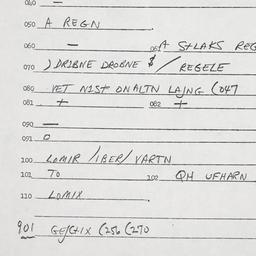 040 —
050 A REGN
060 — 061 A StLAKS REG
070 ) DRIBNE DROBNE $ / REGELE
080 VET NIST ONALTN LAJNG (047
081 + 082 +
090 —
091 o
100 LOMIR /IBER/ VARTN
101 TO 102 QH UFHARN
110 LOMIX
901 GE/GIX (256 (270